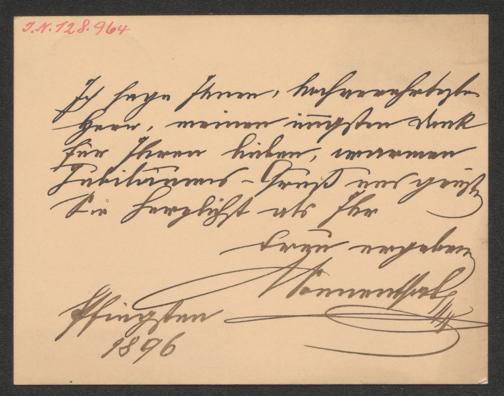 I.N. 128.964
Ich sage Ihnen, hochverehrtester
Herr, meinen innigsten Dank
für Ihren lieben, warmen
Jubiläums-Gruß und grüße
Sie herzlichst als Ihr
treu ergebener
Sonnenthal
Pfingsten
1896